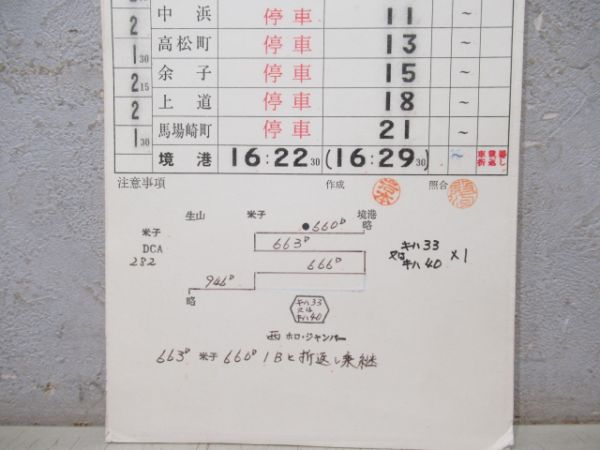 2 中浜 停車 11 ～
1 30 高松町 停車 13 ～
2 15 余子 停車 15 ～
2 上道 停車 18 ～
1 30 馬場崎町 停車 21 ～
境港 16:22 30 (16:29 30) ～
注意事項 作成 照合
生山 米子 境港
略
米子
DCA
282
660D
663D
666D
946D
略
キハ33
又は
キハ40
×1
キハ33
又は
キハ40
西 ホロ・ジャンパー
663D 米子 660D 1Bと折返し乗継